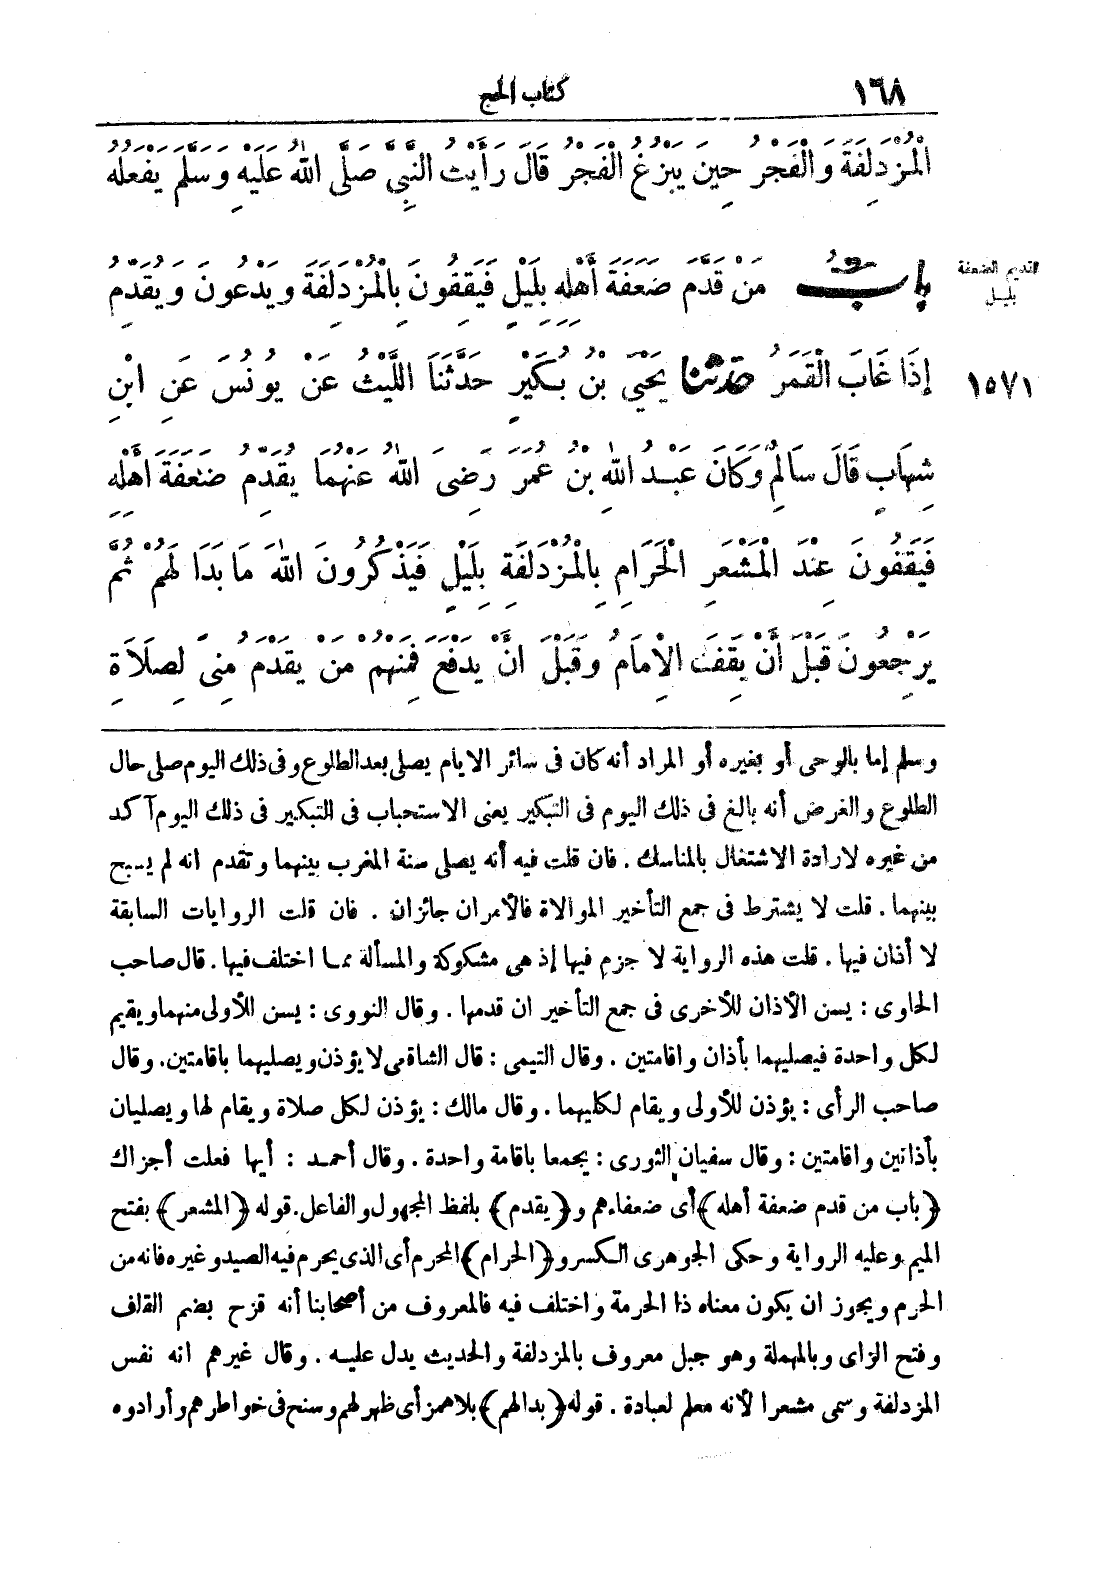 ١٦٨ كتاب الحج
الْمُزْدَلِفَةَ وَالْفَجْرُ حِينَ يَبْزُغُ الْفَجْرُ قَالَ رَأَيْتُ النَّبِيَّ صَلَّى اللهُ عَلَيْهِ وَسَلَّمَ يَفْعَلُهُ
تقديم الضعفة
بليل
بَابُ مَنْ قَدَّمَ ضَعَفَةَ أَهْلِهِ بِلَيْلٍ فَيَقِفُونَ بِالْمُزْدَلِفَةِ وَيَدْعُونَ وَيُقَدِّمُ
١٥٧١
إِذَا غَابَ الْقَمَرُ حَدَّثَنَا يَحْيَى بْنُ بُكَيْرٍ حَدَّثَنَا اللَّيْثُ عَنْ يُونُسَ عَنِ ابْنِ
شِهَابٍ قَالَ سَالِمٌ وَكَانَ عَبْدُ اللهِ بْنُ عُمَرَ رَضِىَ اللهُ عَنْهُمَا يُقَدِّمُ ضَعَفَةَ أَهْلِهِ
فَيَقِفُونَ عِنْدَ الْمَشْعَرِ الْحَرَامِ بِالْمُزْدَلِفَةِ بِلَيْلٍ فَيَذْكُرُونَ اللهَ مَا بَدَا لَهُمْ ثُمَّ
يَرْجِعُونَ قَبْلَ أَنْ يَقِفَ الْإِمَامُ وَقَبْلَ أَنْ يَدْفَعَ فَمِنْهُمْ مَنْ يَقْدَمُ مِنًى لِصَلَاةِ
وسلم إما بالوحى أو بغيره أو المراد أنه كان فى سائر الايام يصلى بعد الطلوع وفى ذلك اليوم صلى حال
الطلوع والغرض أنه بالغ فى ذلك اليوم فى التبكير يعنى الاستحباب فى التبكير فى ذلك اليوم آكد
من غيره لارادة الاشتغال بالمناسك . فان قلت فيه أنه يصلى سنة المغرب بينهما وتقدم انه لم يسبح
بينهما . قلت لا يشترط فى جمع التأخير الموالاة فالأمران جائزان . فان قلت الروايات السابقة
لا أذان فيها . قلت هذه الرواية لا جزم فيها إذ هى مشكوكة والمسألة مما اختلف فيها . قال صاحب
الحاوى : يسن الأذان للأخرى فى جمع التأخير ان قدمها . وقال النووى : يسن للأولى منهما ويقيم
لكل واحدة فيصليهما بأذان واقامتين . وقال التيمى : قال الشافعى لا يؤذن ويصليهما باقامتين . وقال
صاحب الرأى : يؤذن للأولى ويقام لكليهما . وقال مالك : يؤذن لكل صلاة ويقام لها ويصليان
بأذانين واقامتين : وقال سفيان الثورى : يجمعا باقامة واحدة . وقال أحمد : أيها فعلت أجزاك
﴿باب من قدم ضعفة أهله﴾ أى ضعفاءهم و﴿يقدم﴾ بلفظ المجهول والفاعل . قوله ﴿المشعر﴾ بفتح
الميم وعليه الرواية وحكى الجوهرى الكسر و﴿الحرام﴾ المحرم أى الذى يحرم فيه الصيد وغيره فانه من
الحرم ويجوز ان يكون معناه ذا الحرمة واختلف فيه فالمعروف من أصحابنا أنه قزح بضم القاف
وفتح الزاى وبالمهملة وهو جبل معروف بالمزدلفة والحديث يدل عليه . وقال غيرهم انه نفس
المزدلفة وسمى مشعرا لأنه معلم لعبادة . قوله ﴿بدا لهم﴾ بلا همز أى ظهر لهم وسنح فى خواطرهم وأرادوه